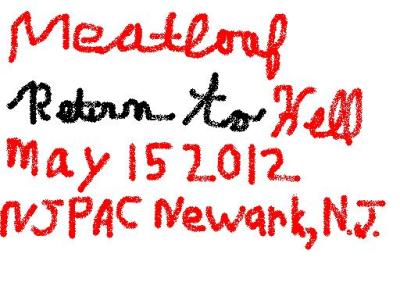 Meatloaf
Retern to Hell
May 15 2012
NJPAC Newark, N.J.